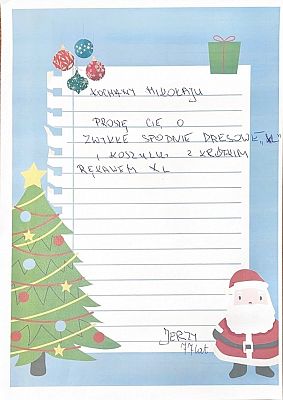 KOCHANY MIKOŁAJU
PROSZĘ CIĘ O
ZWYKŁE SPODNIE DRESOWE „XL"
I KOSZULĘ Z KRÓTKIM
RĘKAWEM XL
JERZY
77 lat